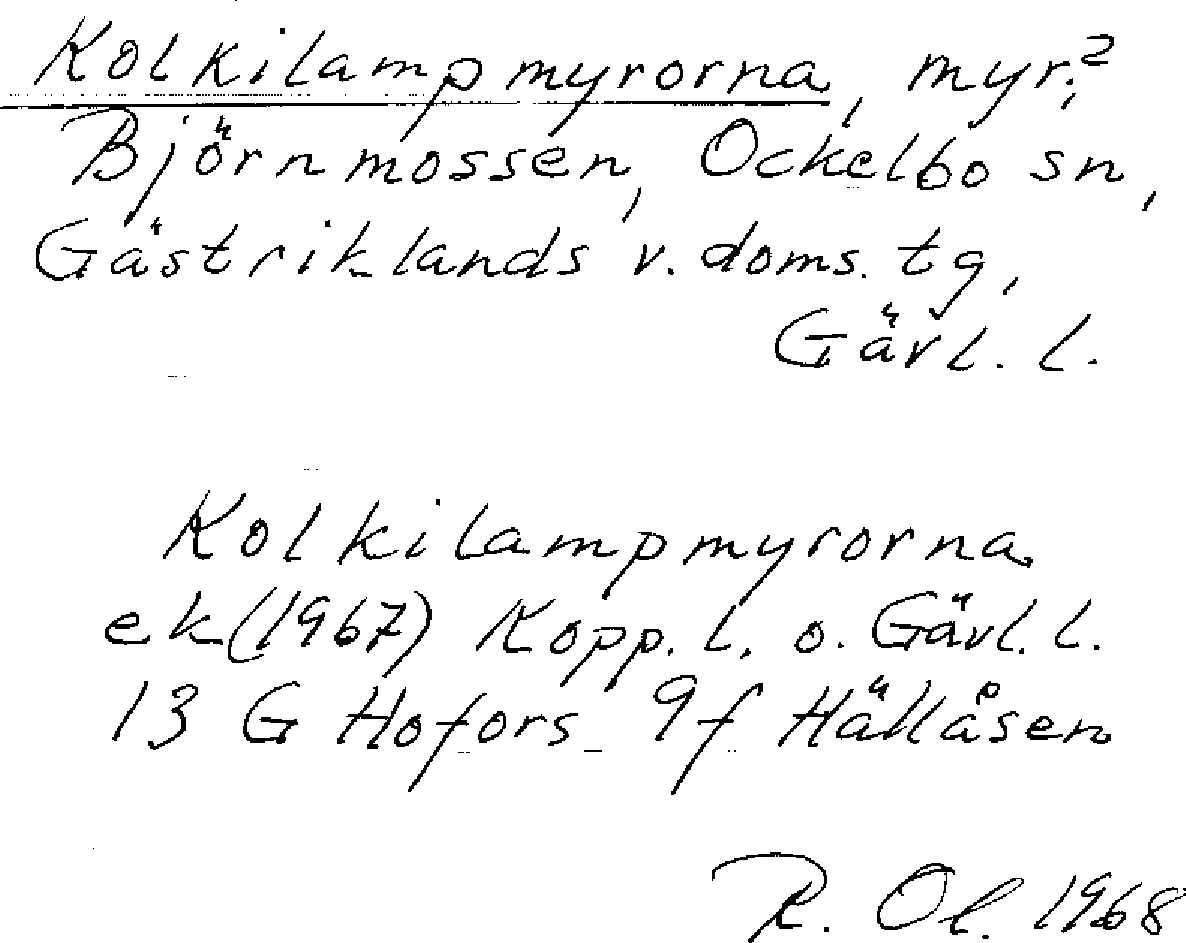 Kolkilampmyrorna, myr;?
Björnmossen, Ockelbo sn,
Gästriklands v. doms. tg,
Gävl. l.
Kolkilampmyrorna
ek (1967) Kopp. l. o. Gävl. l.
13 G Hofors 9f Hällåsen
R. Ol. 1968